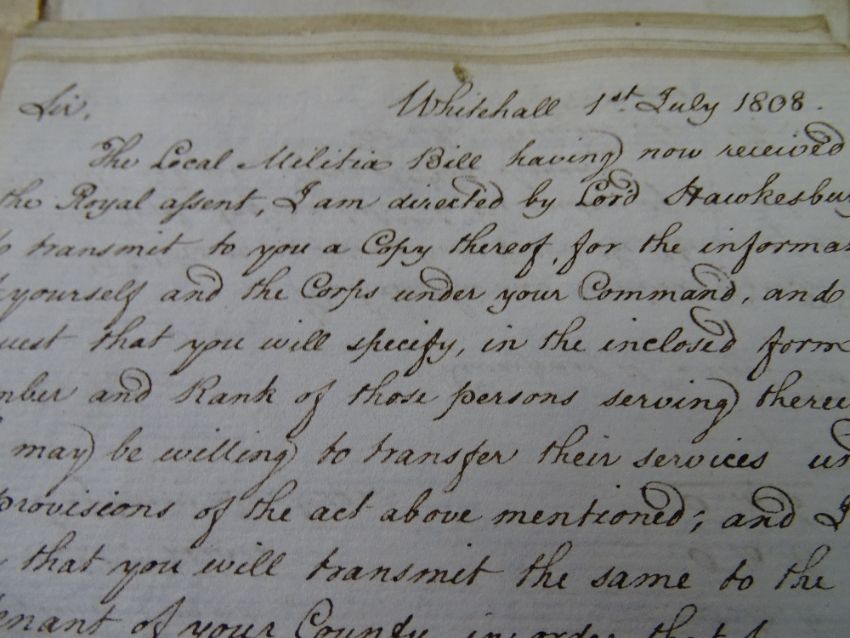 Sir, Whitehall 1st July 1808.
The Local Militia Bill having now received
the Royal assent, I am directed by Lord Hawkesbury
transmit to you a Copy thereof, for the informa
yourself and the Corps under your Command, and
uest that you will specify, in the inclosed form
mber and Rank of those persons serving there
may be willing to transfer their services un
provisions of the act above mentioned; and I
that you will transmit the same to the
enant of your County in order that